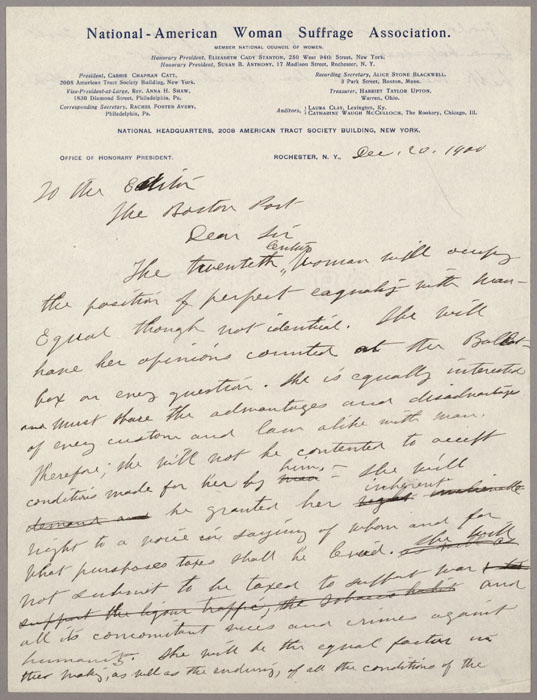 National-American Woman Suffrage Association.
MEMBER NATIONAL COUNCIL OF WOMEN.
Honorary President, ELIZABETH CADY STANTON, 250 West 94th Street, New York.
Honorary President, SUSAN B. ANTHONY, 17 Madison Street, Rochester, N. Y.
President, CARRIE CHAPMAN CATT,
2008 American Tract Society Building, New York.
Vice-President-at-Large, REV. ANNA H. SHAW,
1830 Diamond Street, Philadelphia, Pa.
Corresponding Secretary, RACHEL FOSTER AVERY,
Philadelphia, Pa.
Recording Secretary, ALICE STONE BLACKWELL,
3 Park Street, Boston, Mass.
Treasurer, HARRIET TAYLOR UPTON,
Warren, Ohio.
Auditors, { LAURA CLAY, Lexington, Ky.
CATHARINE WAUGH MCCULLOCH, The Rookery, Chicago, Ill.
NATIONAL HEADQUARTERS, 2008 AMERICAN TRACT SOCIETY BUILDING, NEW YORK.
OFFICE OF HONORARY PRESIDENT. ROCHESTER, N. Y., Dec. 20. 1900
To the Editor
The Boston Post
Dear Sir
The twentieth Century Woman will occupy
the position of perfect equality with man—
Equal though not identical. She will
have her opinions counted at the Ballot-
box on every question. She is equally interested
and must share the advantages and disadvantages
of every custom and law alike with man.
Therefore; she will not be contented to accept
conditions made for her by man him, — She will
demand and be granted her right inalienable inherent
right to a voice in saying of whom and for
what purposes taxes shall be levied. She will
not submit to be taxed to support war
support the liquor traffic, the tobacco habit and
all its concomitant vices and crimes against
humanity. She will be the equal factor in
the making, as well as the enduring, of all the conditions of the